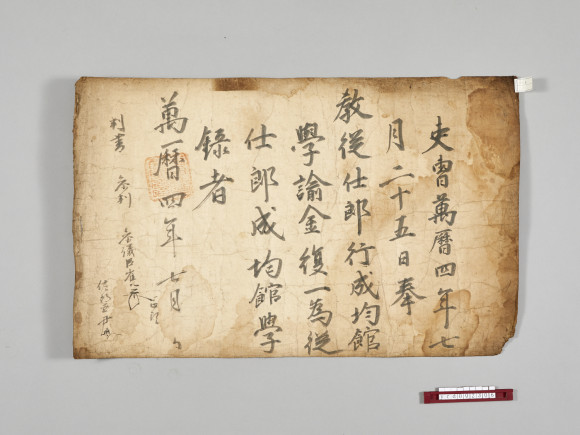 吏曹萬曆四年七
月二十五日奉
敎從仕郎行成均館
學諭金復一為從
仕郎成均館學
錄者
萬曆四年七月
判書
參判
參議臣
正郎
佐郎